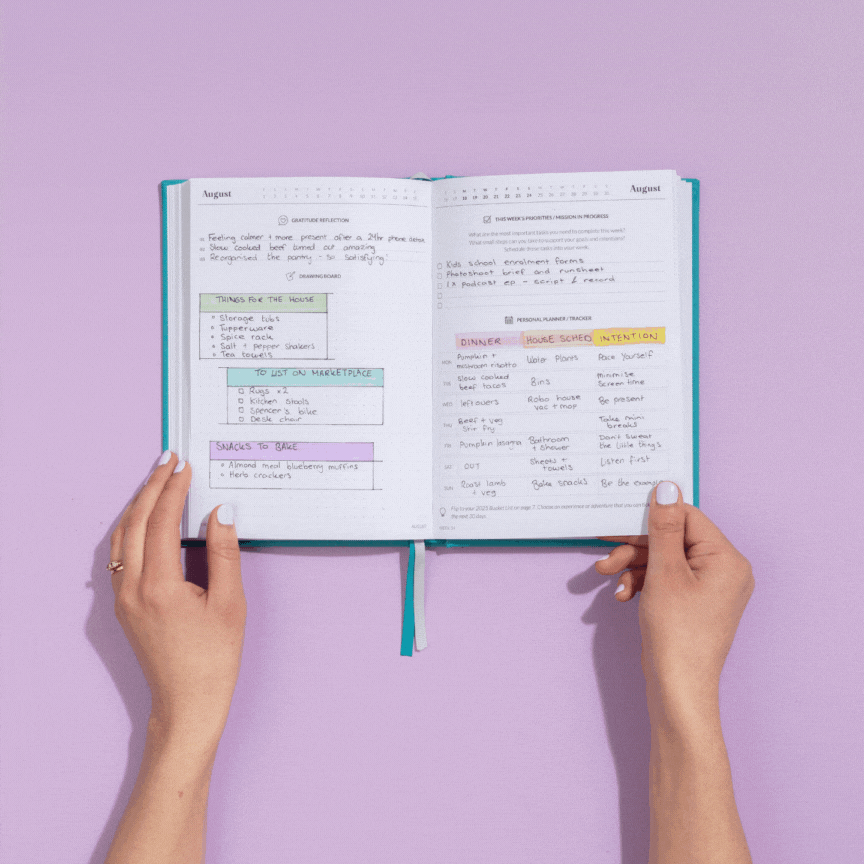 August
GRATITUDE REFLECTION
Feeling calmer + more present after a 24hr phone detox
Slow cooked beef turned out amazing
Reorganised the pantry - so satisfying!
DRAWING BOARD
THINGS FOR THE HOUSE
Storage tubs
Tupperware
Spice rack
Salt + pepper shakers
Tea towels
TO LIST ON MARKETPLACE
Rugs x2
Kitchen stools
Spencer's bike
Desk chair
SNACKS TO BAKE
Almond meal blueberry muffins
Herb crackers
August
THIS WEEK'S PRIORITIES / MISSION IN PROGRESS
What are the most important tasks you need to complete this week?
What small steps can you take to support your goals and intentions?
Schedule these tasks into your week.
Kids school enrolment forms
Photoshoot brief and runsheet
1 x podcast ep - script & record
PERSONAL PLANNER / TRACKER
DINNER HOUSE SCHED INTENTION
MON Pumpkin + mushroom risotto Water plants Pace yourself
TUE Slow cooked beef tacos Bins minimise screen time
WED leftovers Robo house vac + mop Be present
THU Beef + veg stir fry Take mini breaks
FRI Pumpkin lasagna Bathroom + shower Don't sweat the little things
SAT OUT Sheets + towels Listen first
SUN Roast lamb + veg Bake snacks Be the example
Flip to your 2025 Bucket List on page 7. Choose an experience or adventure that you can
the next 30 days.